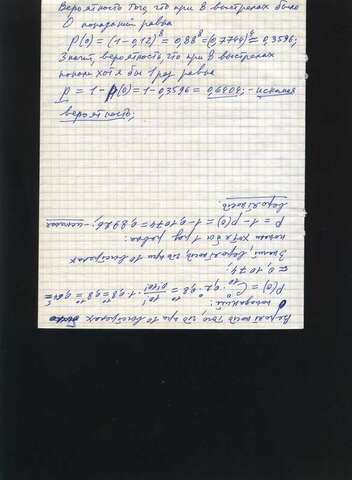 Вероятность того, что при 8 выстрелах было
0 попаданий равна
P(0) = (1-0,12)⁸ = 0,88⁸ = (0,7744)⁴ = 0,3596;
Значит, вероятность, что при 8 выстрелах
попал хотя бы 1 раз равна
P = 1 - P(0) = 1 - 0,3596 = 0,6404; - искомая
вероятность;
Вероятность того, что при 10 выстрелах было
0 попаданий:
P(0) = C₁₀⁰ · 0,2⁰ · 0,8¹⁰ = 10!/0!10! · 1 · 0,8¹⁰ = 0,8¹⁰ =
= 0,1074;
Значит, вероятность, что при 10 выстрелах
попал хотя бы 1 раз равна:
P = 1 - P(0) = 1 - 0,1074 = 0,8926; - искомая
вероятность.